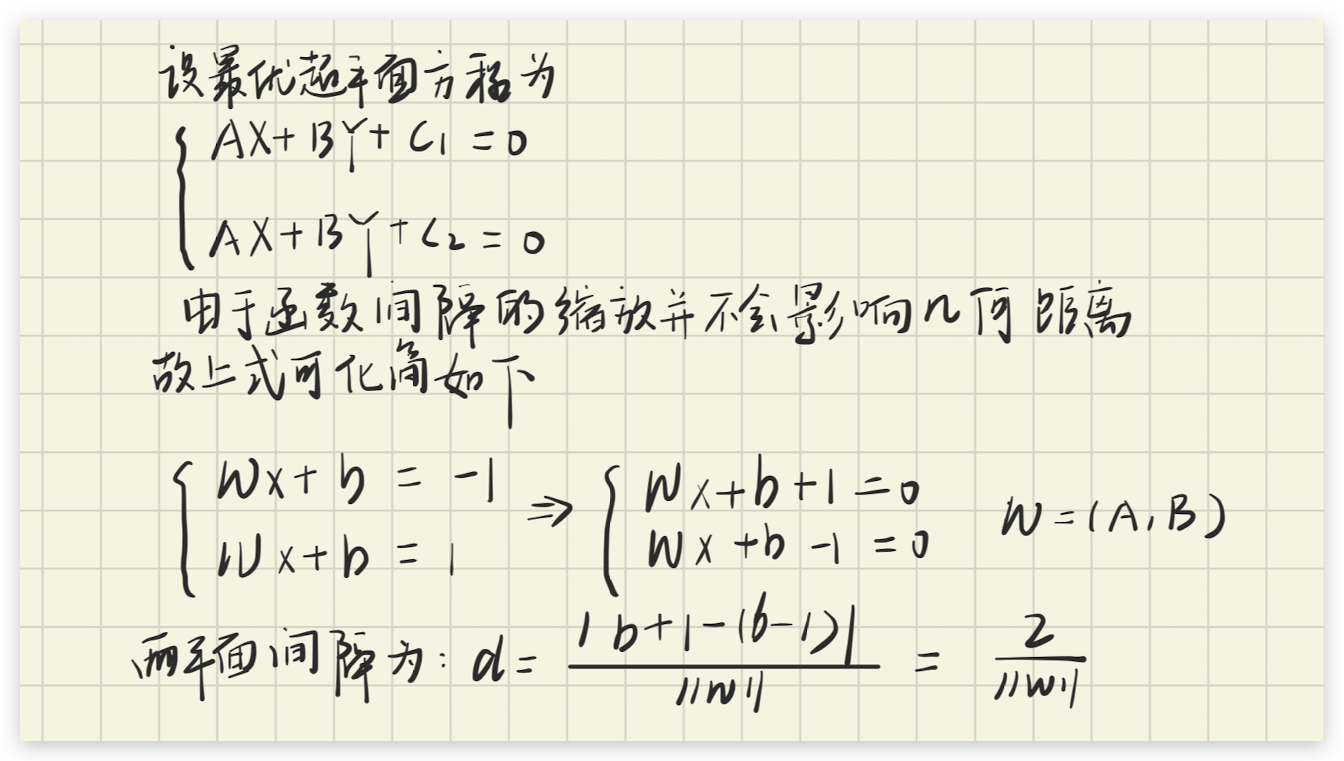 设最优超平面方程为
{ AX+BY+C₁=0
AX+BY+C₂=0
由于函数间隔的缩放并不会影响几何距离
故上式可化简如下
{ Wx+b = -1 ⇒ { Wx+b+1=0 W=(A,B)
Wx+b = 1 Wx+b-1=0
两平面间隔为: d= |b+1-(b-1)| / ||w|| = 2 / ||w||